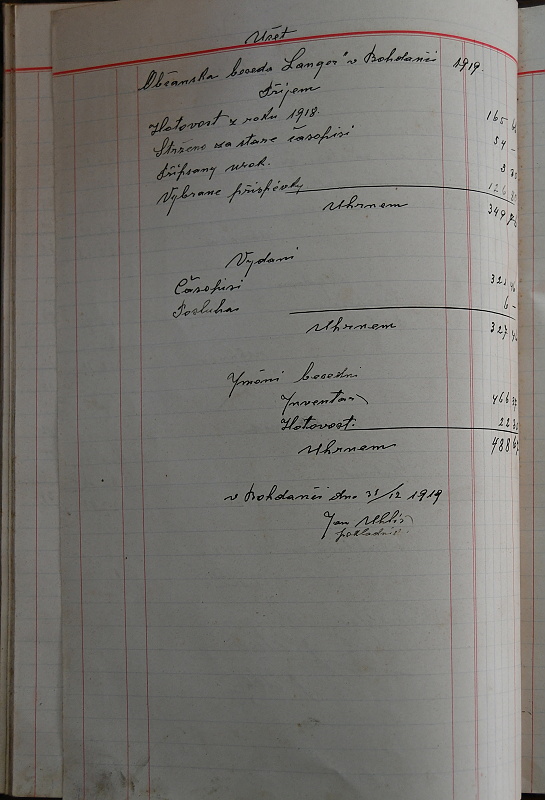 Účet
Občanska beseda Langer" v Bohdanči 1919.
Příjem
Hotovost z roku 1918. 165
Strženo za stare časopisi 54 –
Připsany urok. 3
Vybrane příspěvky 126
Uhrnem 349
Vydani
Časopisi 321
Posluha 6 –
Uhrnem 327
Jmění besedni
Inventař 466
Hotovost. 22
Uhrnem 488
v Bohdanči dne 31/12 1919
Jan Uhlíř
pokladnis.